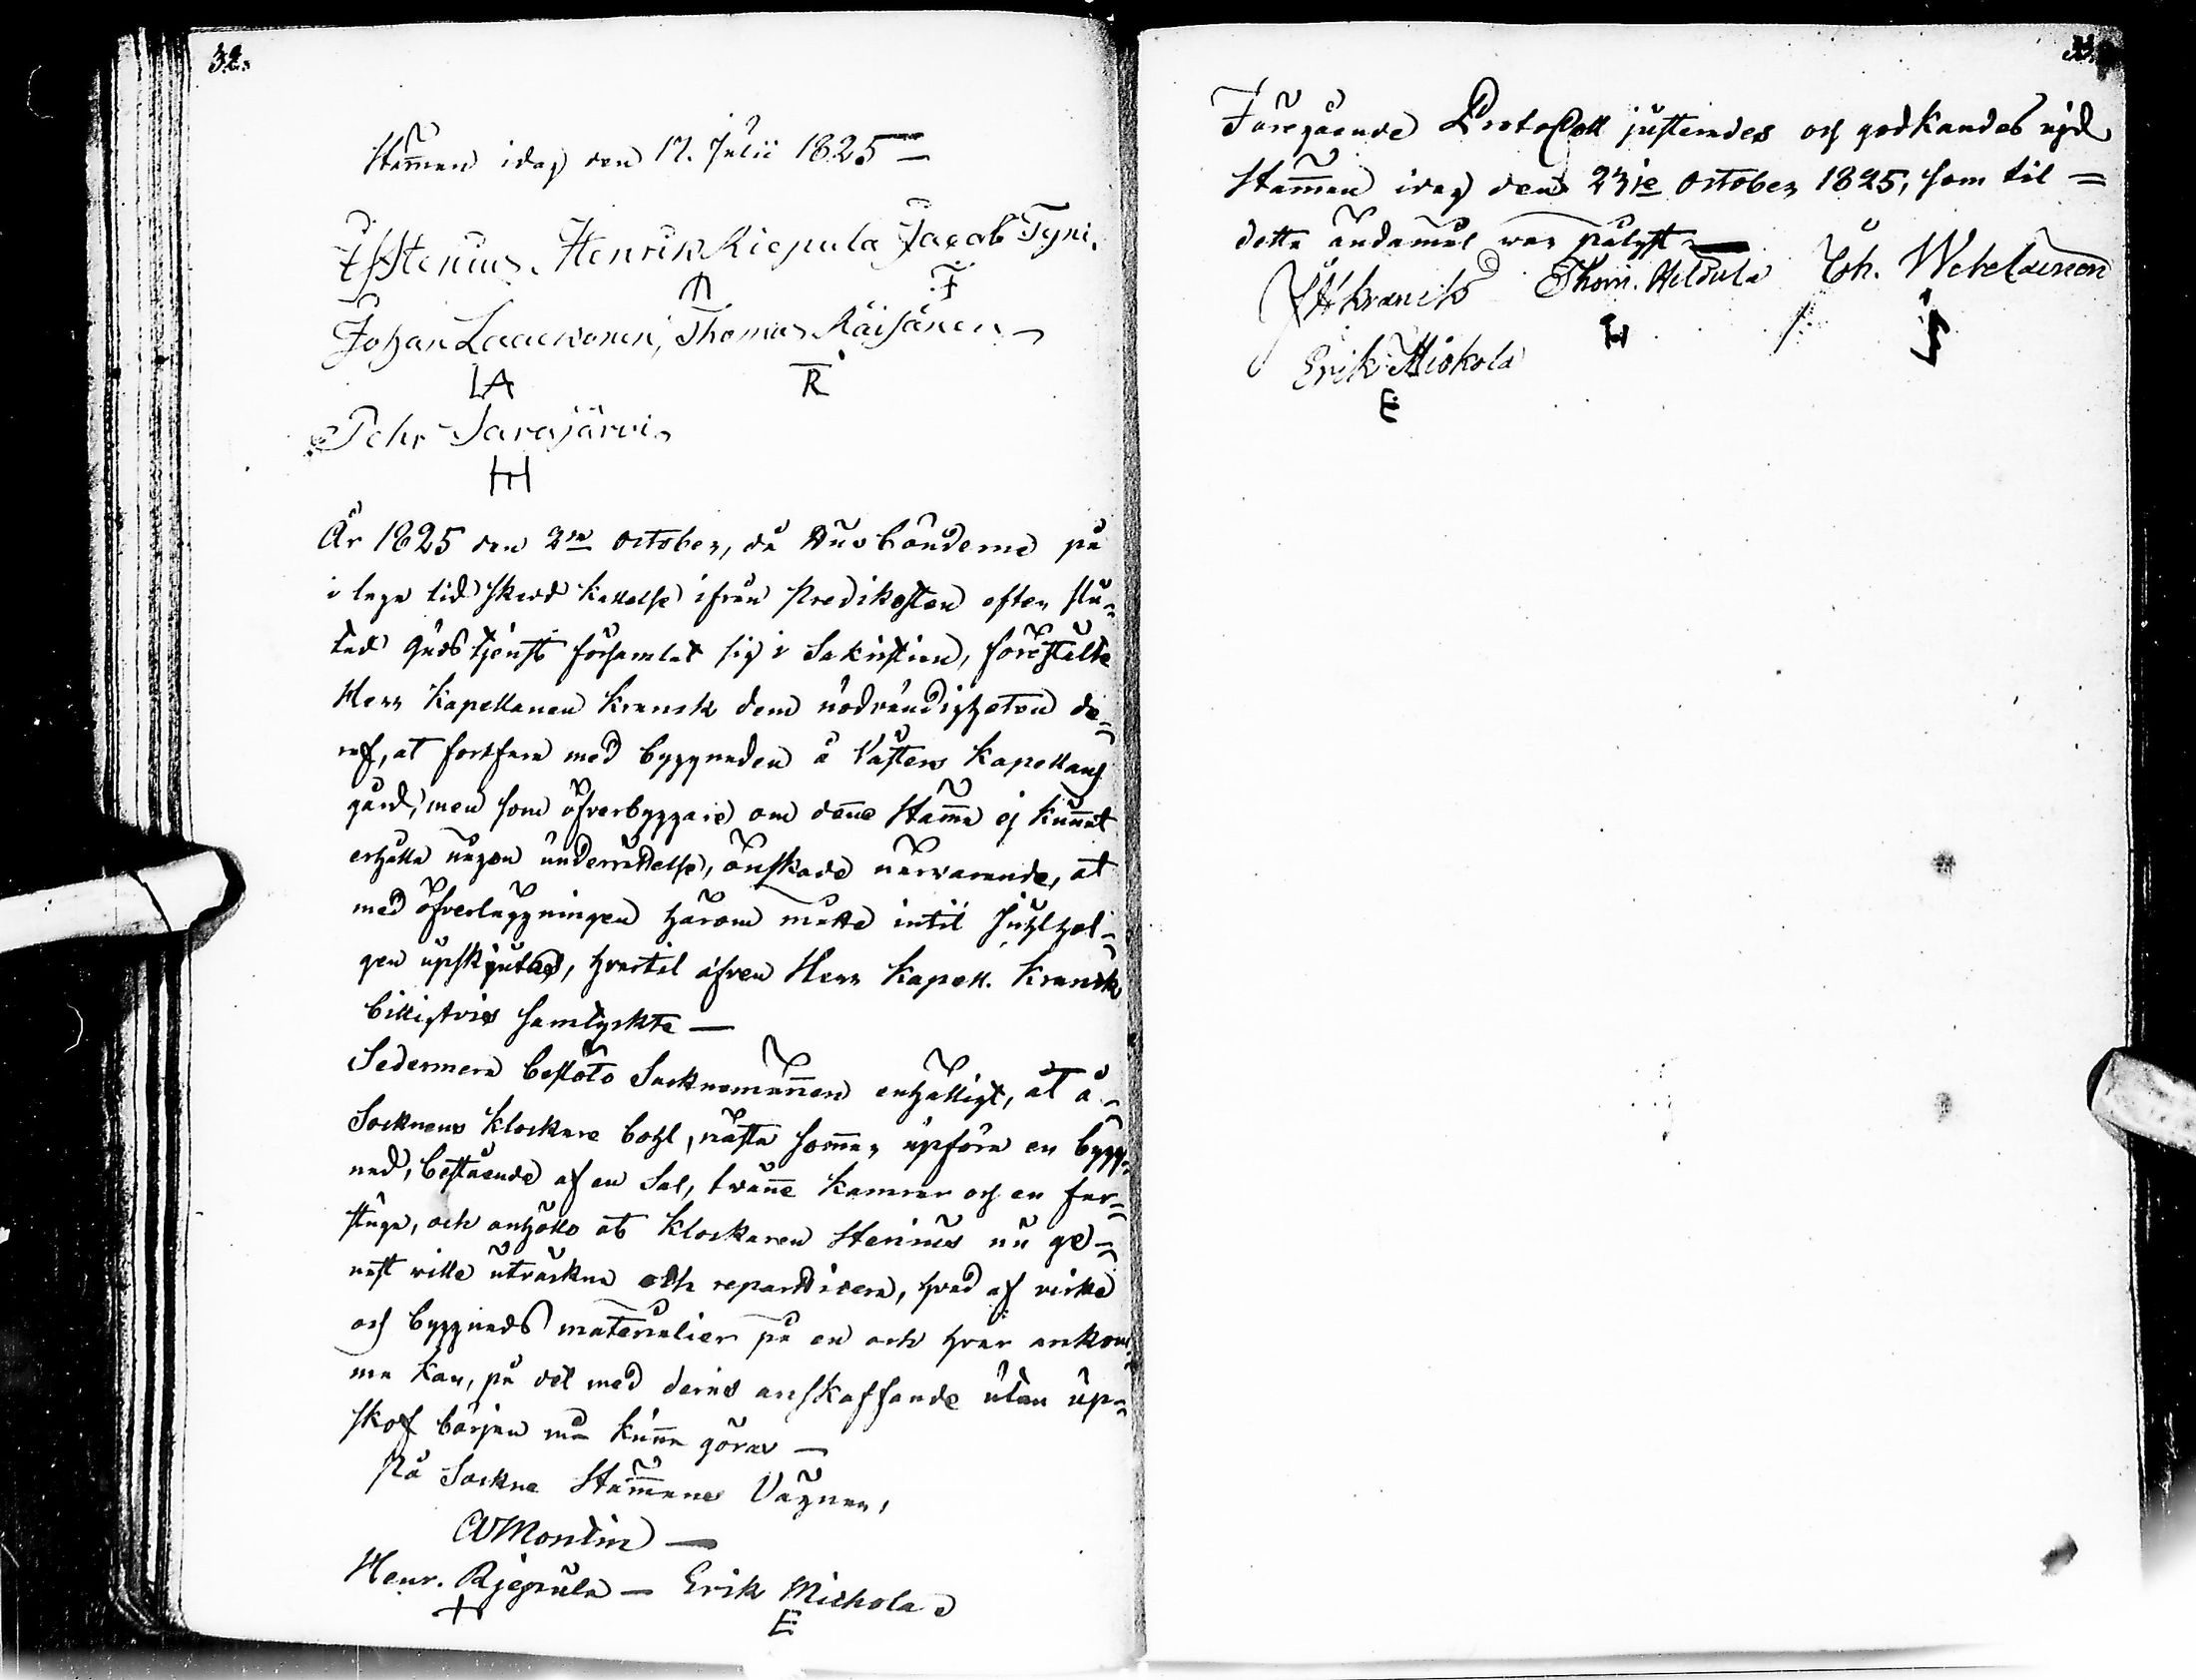 32.
Stämman idag den 17. Julii 1825 —
Stenius. Henrik Riepula Jacob Tyni.
F
Johan Laaewonen, Thomas Räisänen —
LA R
Pehr Sarajärvi.
H
År 1825 den 2dra October, då Husbönderne på
i laga tid skedd kallelse ifrån Predikostolen efter slu-
tad Gudstjenst församlat sig i Sakristian, föreställte
Herr Kapellanen Kranck dem nödvändigheten de-
raf, at fortfara med byggnaden å Västers Kapellans
gård, men som öfverbyggare om denne Stämma ej kunnat
erhålla någon underrättelse, önskade närvarande, at
med öfverläggningen härom måtte intil Juhlhel-
gen upskjutas, hvartil äfven Herr Kapell. Kranck
billigtvis samtyckte —
Sedermera beslöto Socknemännen enhälligt, at å
Socknens Klockare bohl, nästa sommar upföra en bygg-
nad, bestående af en Sal, twänne kamrar och en far-
stuga, och anhöllo at Klockaren Stenius nu ge-
nast wille uträckna och repartisera, hvad af virke
och byggnads materialier på en och hvar ankom-
ma kan, på det med deras anskaffande utan up-
skof början må kunna göras —
På Sockne Stämmans Vägnar,
CWMontin —
Henr. Rjepula — Erik Miekola
E
Föregående Protocoll justerades och godkändes vid
Stämman idag den 23je October 1825, som til =
detta ändamål war pålyst —
Kranck Thom. Hildula Joh. Wehelainen
H
Erik Miokola
E